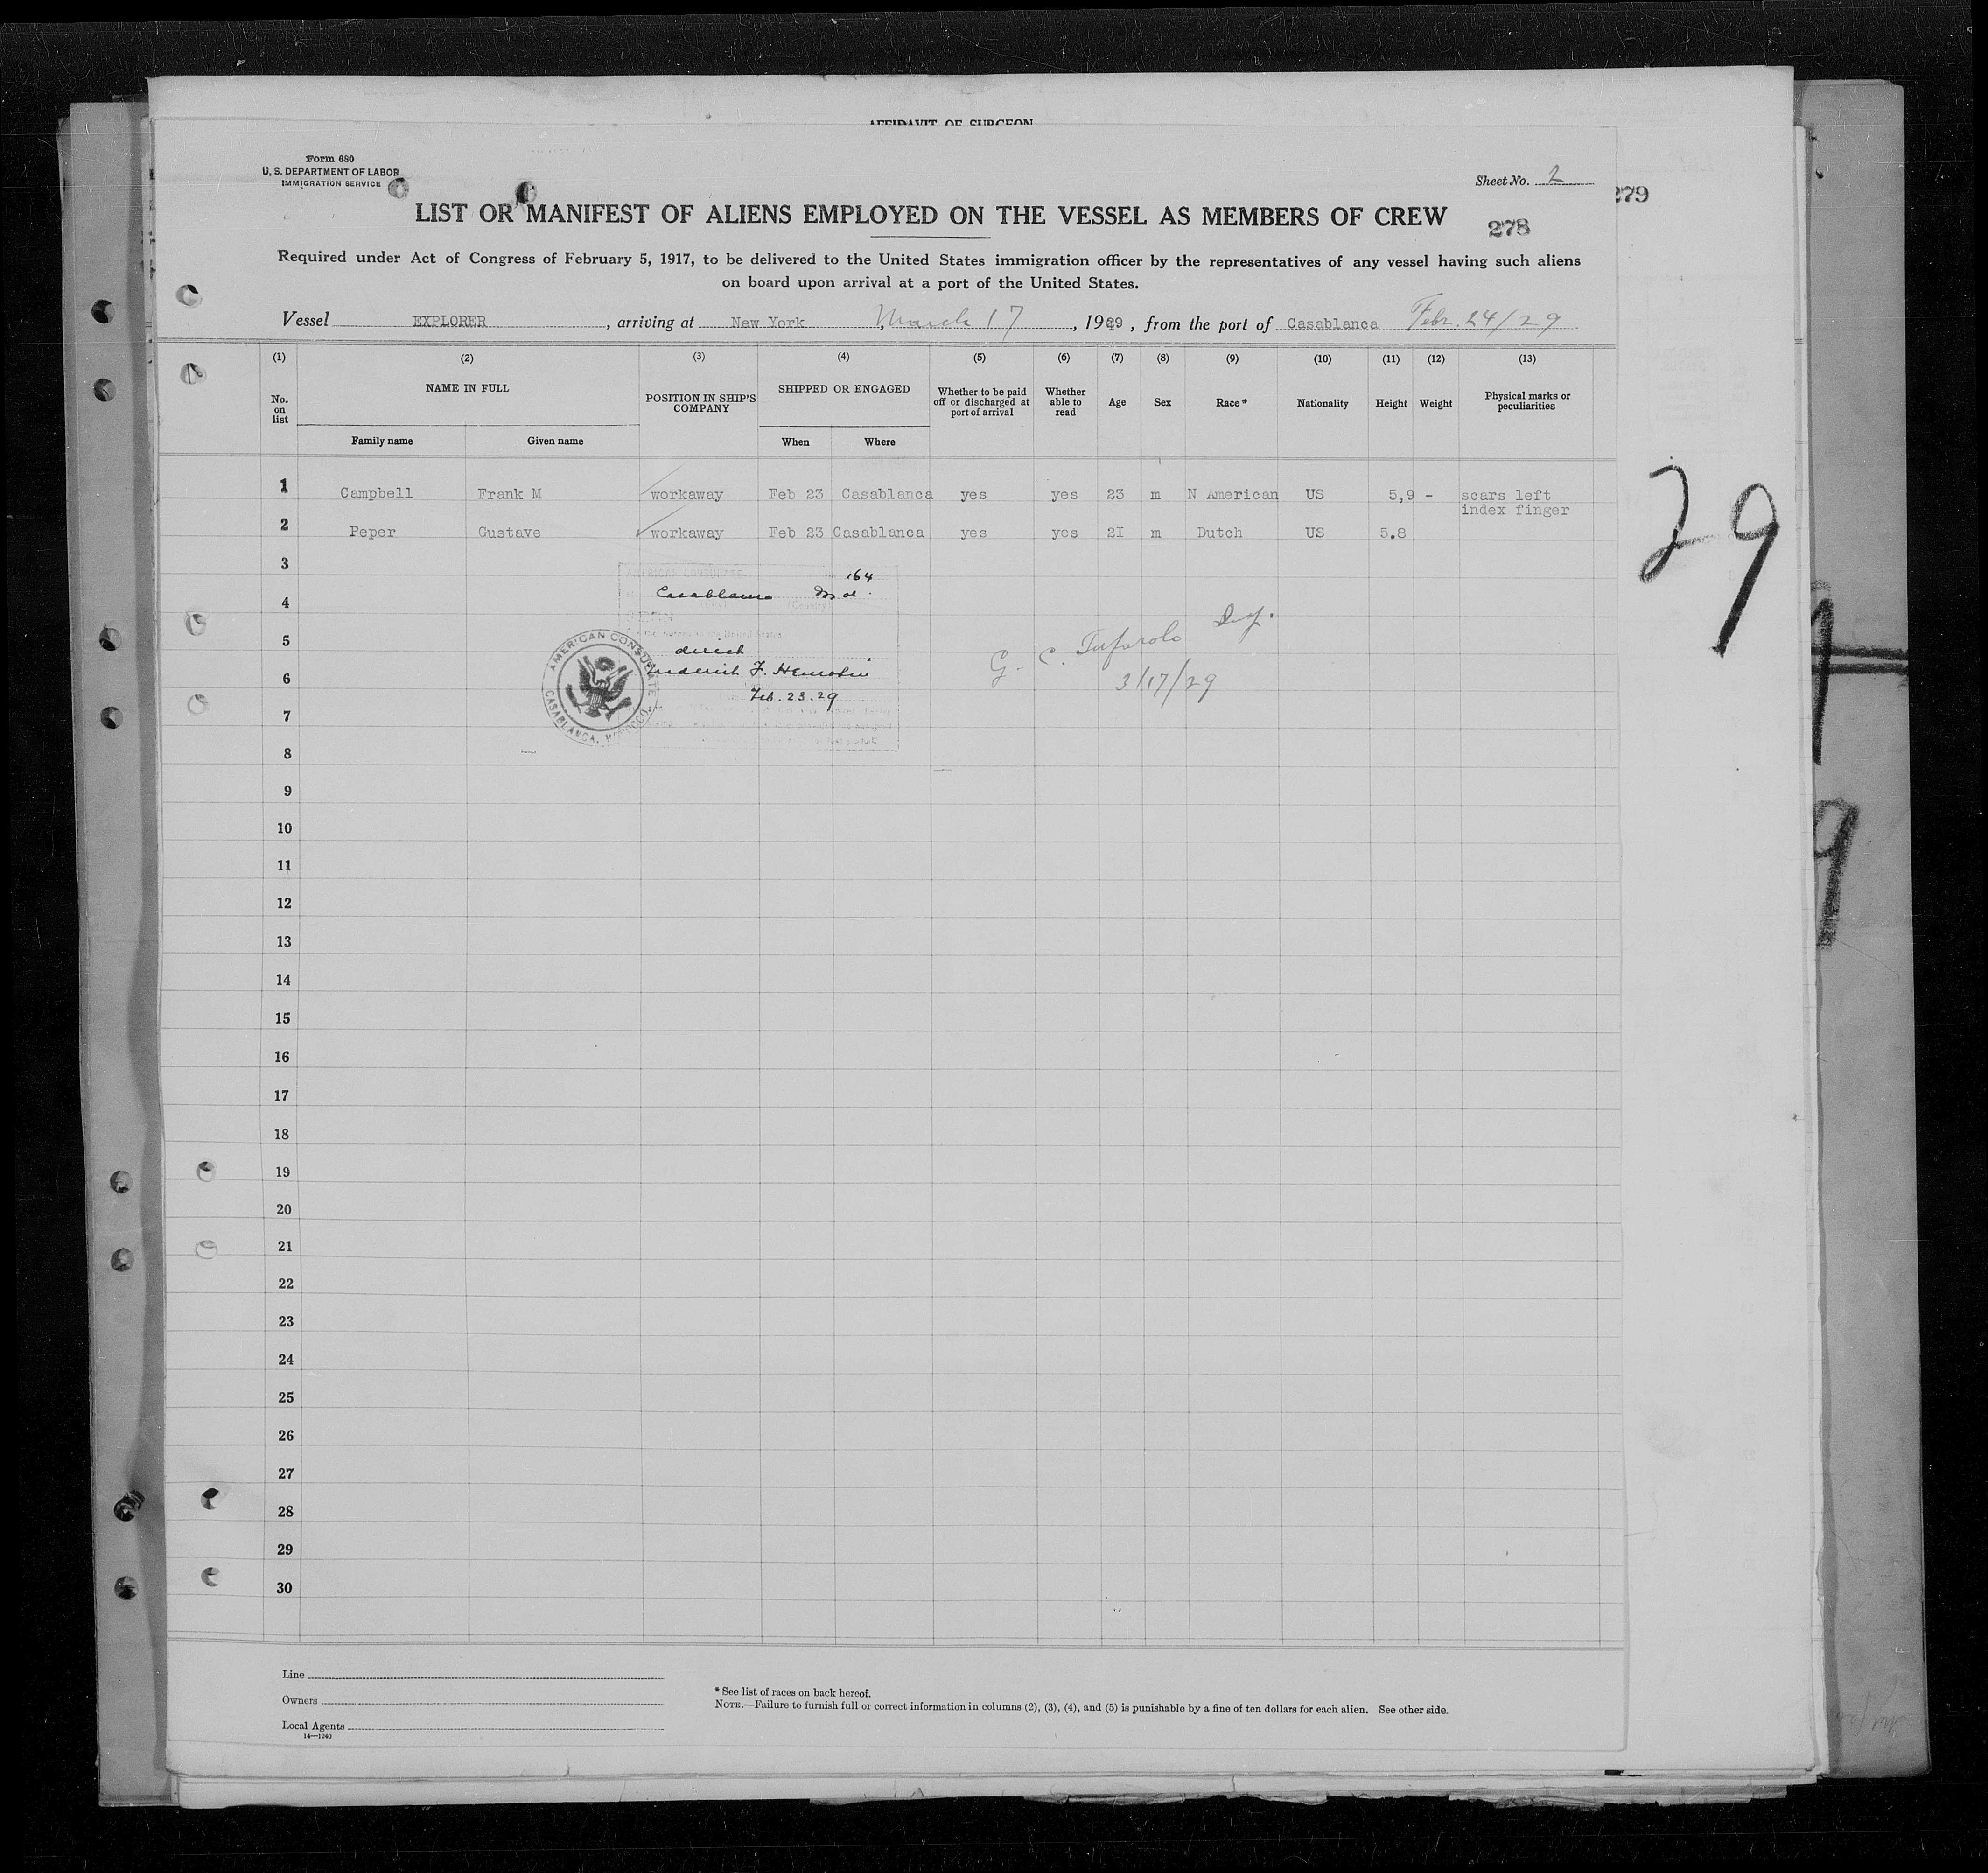 AFFIDAVIT OF SURGEON
Form 680
U. S. DEPARTMENT OF LABOR
IMMIGRATION SERVICE
Sheet No. 2
279
LIST OR MANIFEST OF ALIENS EMPLOYED ON THE VESSEL AS MEMBERS OF CREW
278
Required under Act of Congress of February 5, 1917, to be delivered to the United States immigration officer by the representatives of any vessel having such aliens
on board upon arrival at a port of the United States.
Vessel EXPLORER, arriving at New York, March 17, 1929, from the port of Casablanca Febr. 24/29
(1) (2) (3) (4) (5) (6) (7) (8) (9) (10) (11) (12) (13)
No. on list NAME IN FULL POSITION IN SHIP'S COMPANY SHIPPED OR ENGAGED Whether to be paid off or discharged at port of arrival Whether able to read Age Sex Race* Nationality Height Weight Physical marks or peculiarities
Family name Given name When Where
1 Campbell Frank M workaway Feb 23 Casablanca yes yes 23 m N American US 5,9 - scars left
index finger
2 Peper Gustave workaway Feb 23 Casablanca yes yes 2I m Dutch US 5.8
29
3
AMERICAN CONSULATE
164
4 Casablanca
SEEN
5
direct
6 F.
G. C. Insp.
3/17/29
Feb. 23. 29
AMERICAN CONSULATE
CASABLANCA, MOROCCO.
7
8
9
10
11
12
13
14
15
16
17
18
19
20
21
22
23
24
25
26
27
28
29
30
Line
Owners
Local Agents
14—1240
* See list of races on back hereof.
NOTE.—Failure to furnish full or correct information in columns (2), (3), (4), and (5) is punishable by a fine of ten dollars for each alien. See other side.